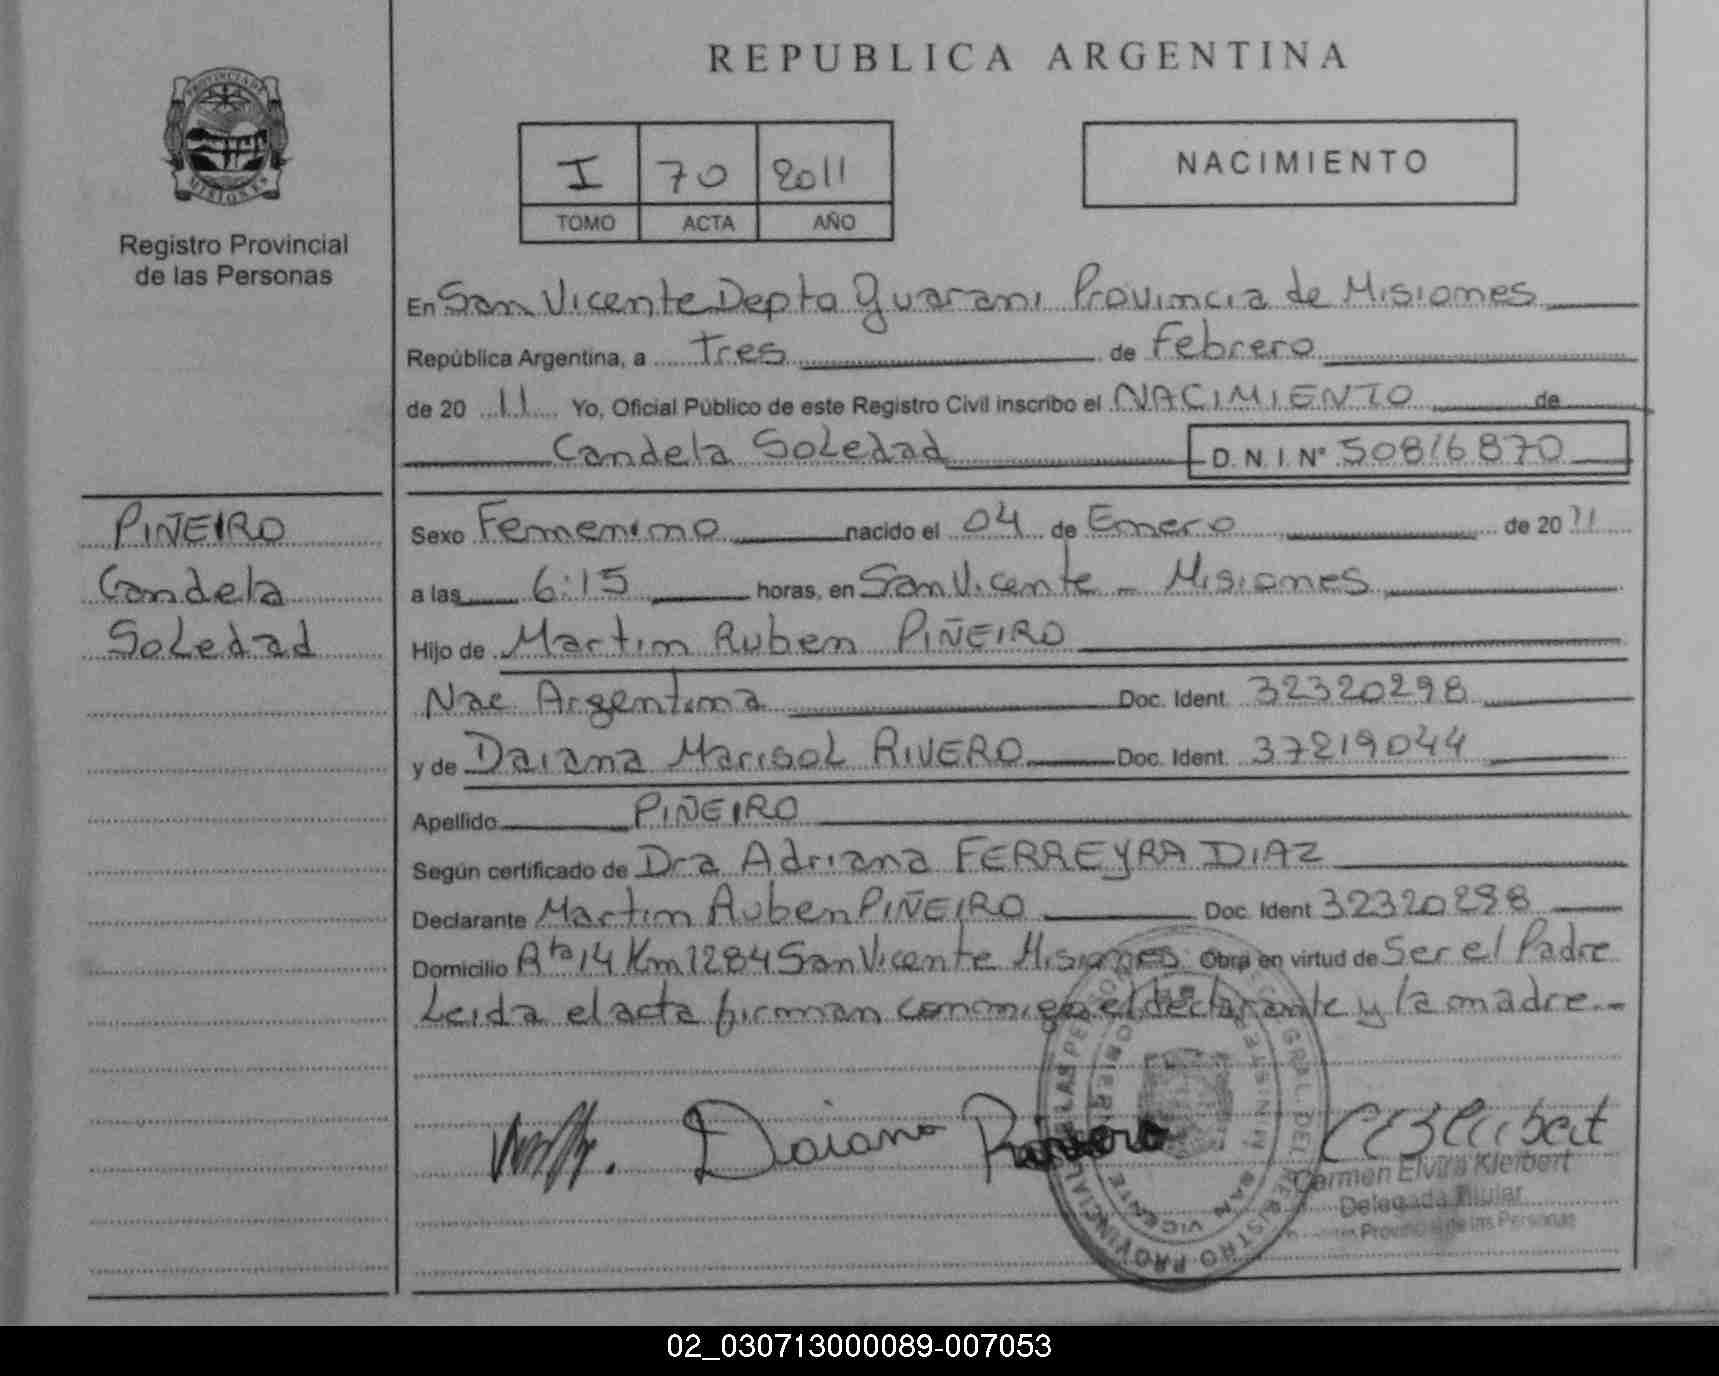 REPUBLICA ARGENTINA
PROVINCIA DE
MISIONES
Registro Provincial
de las Personas
I 70 2011
TOMO ACTA AÑO
NACIMIENTO
En San Vicente Depto Guarani Provincia de Misiones
República Argentina, a Tres de Febrero
de 20 11 Yo, Oficial Público de este Registro Civil inscribo el NACIMIENTO de
Candela Soledad D. N. I. N° 50816870
PIÑEIRO
Candela
Soledad
Sexo Femenino nacido el 04 de Enero de 20 11
a las 6:15 horas, en San Vicente - Misiones
Hijo de Martin Ruben PIÑEIRO
Nac. Argentina Doc. Ident. 32320298
y de Daiana Marisol RIVERO Doc. Ident. 37219044
Apellido PIÑEIRO
Según certificado de Dra Adriana FERREYRA DIAZ
Declarante Martin Ruben PIÑEIRO Doc. Ident 32320298
Domicilio Rta 14 Km 1284 San Vicente Misiones Obra en virtud de Ser el Padre
Leida el acta firman conmigo el declarante y la madre.-
Daiana Rivero
Carmen Elvira Kleibert
Delegada Titular
Provincial de las Personas
GRAL. DEL REGISTRO PROVINCIAL DE LAS PERSONAS
SAN VICENTE
02_030713000089-007053